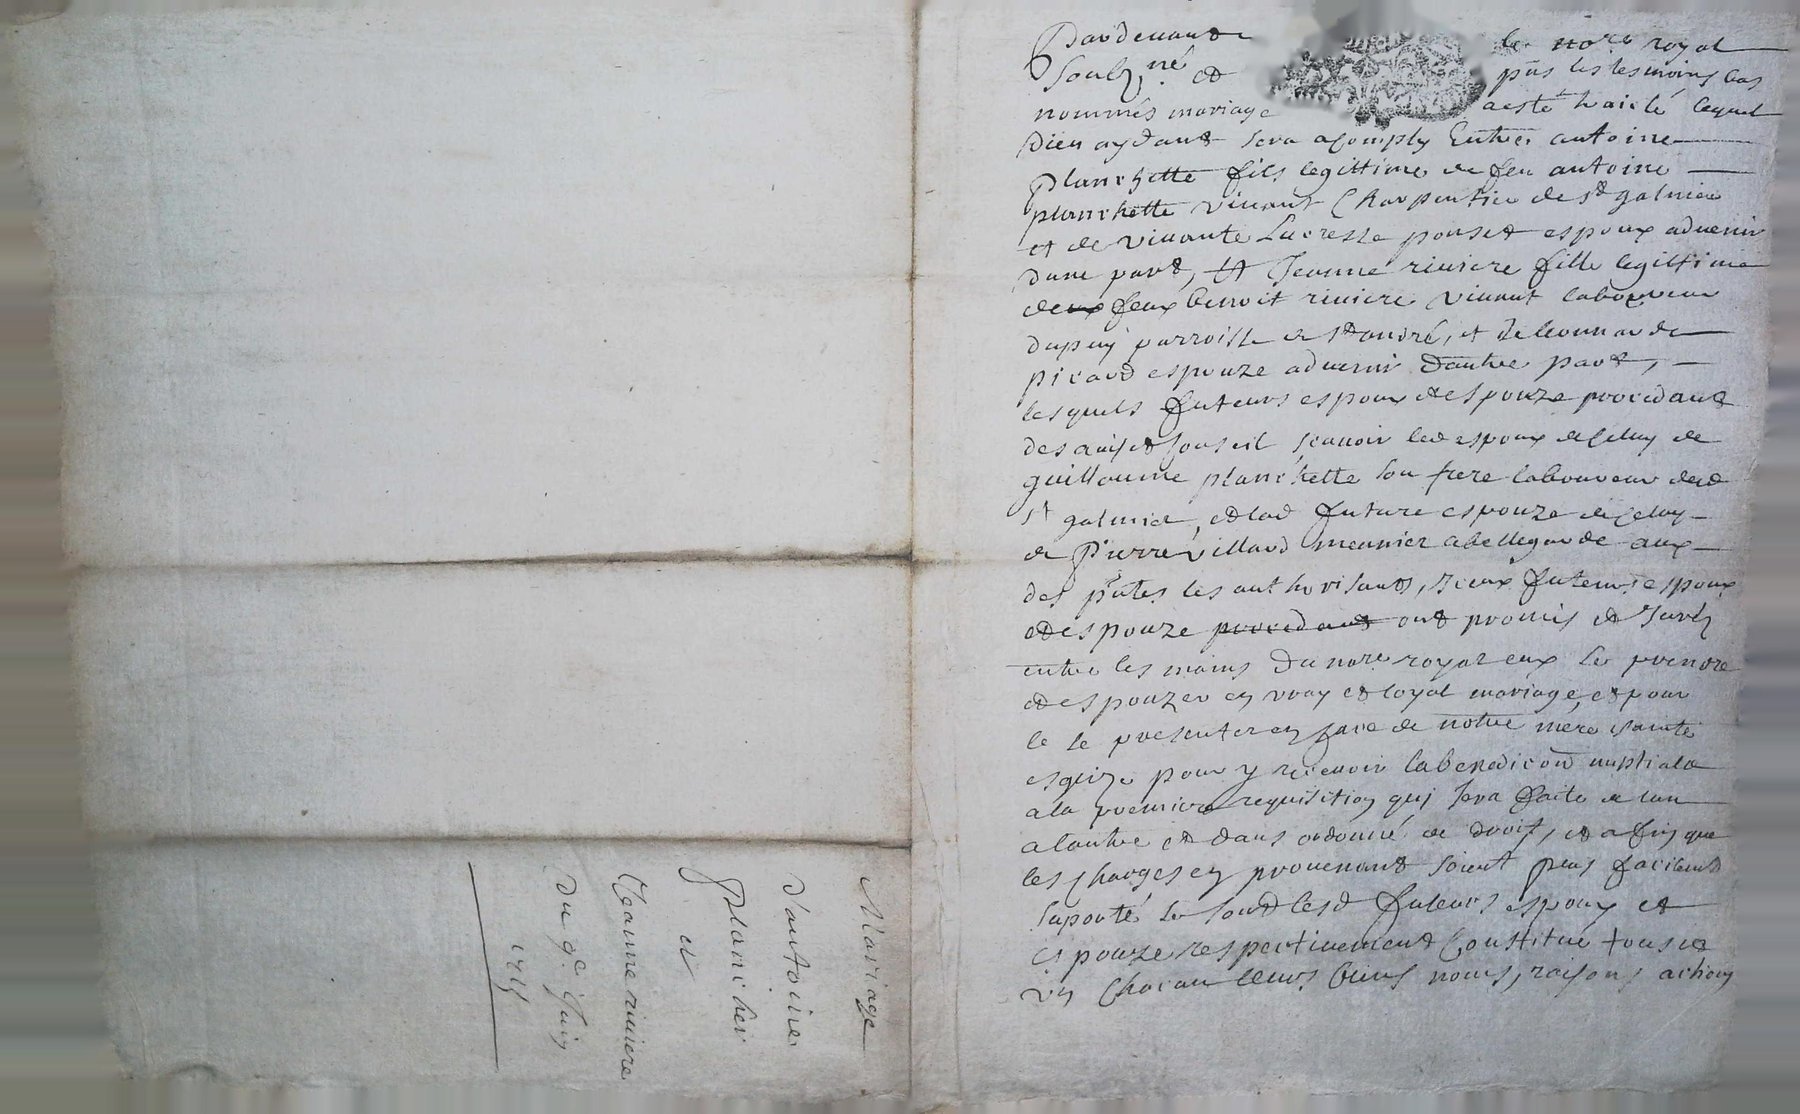 Pardevant le nore royal
soubzné et pnts les tesmoins bas
nommés mariage a esté traicté lequel
dieu aydant sera acomply Entre antoine
planchette fils legittime de feu antoine
planchette vivant Charpentier de st galmier
et de vivante Lucresse ponset espoux advenir
dune part, Et Jeanne riviere fille legittime
de feux benoit riviere vivant laboureur
dupuy parroisse de st andré, et de leonnarde
picard espouze advenir dautre part,
lesquels futeurs espoux et espouze procedant
des avis et conseil scavoir led espoux de celuy de
guillaume planchette son frere laboureur dud
st galmier, et lad future espouze de celuy
de Pierre villard meunier a bellegarde aux
des pntes les authorisants, iceux futeurs espoux
et espouze procedant ont promis et Juré
entre les mains du nore royal eux se prendre
et espouzer en vray et loyal mariage, et pour
ce se presenter en face de notre mére sainte
esglize pour y recevoir la benediction nuptialle
a la premiere requisition qui sera faite de lun
a lautre et dans ordonné de droit, et afin que
les charges en provenant soient plus facilemt
suporté se sont lesd futeurs espoux et
espouze respectivement Constitué tous et
un chacun leurs biens noms, raisons actions
Mariage
d'antoine
Plancher
et
Jeanne riviere
Du 9e Juin